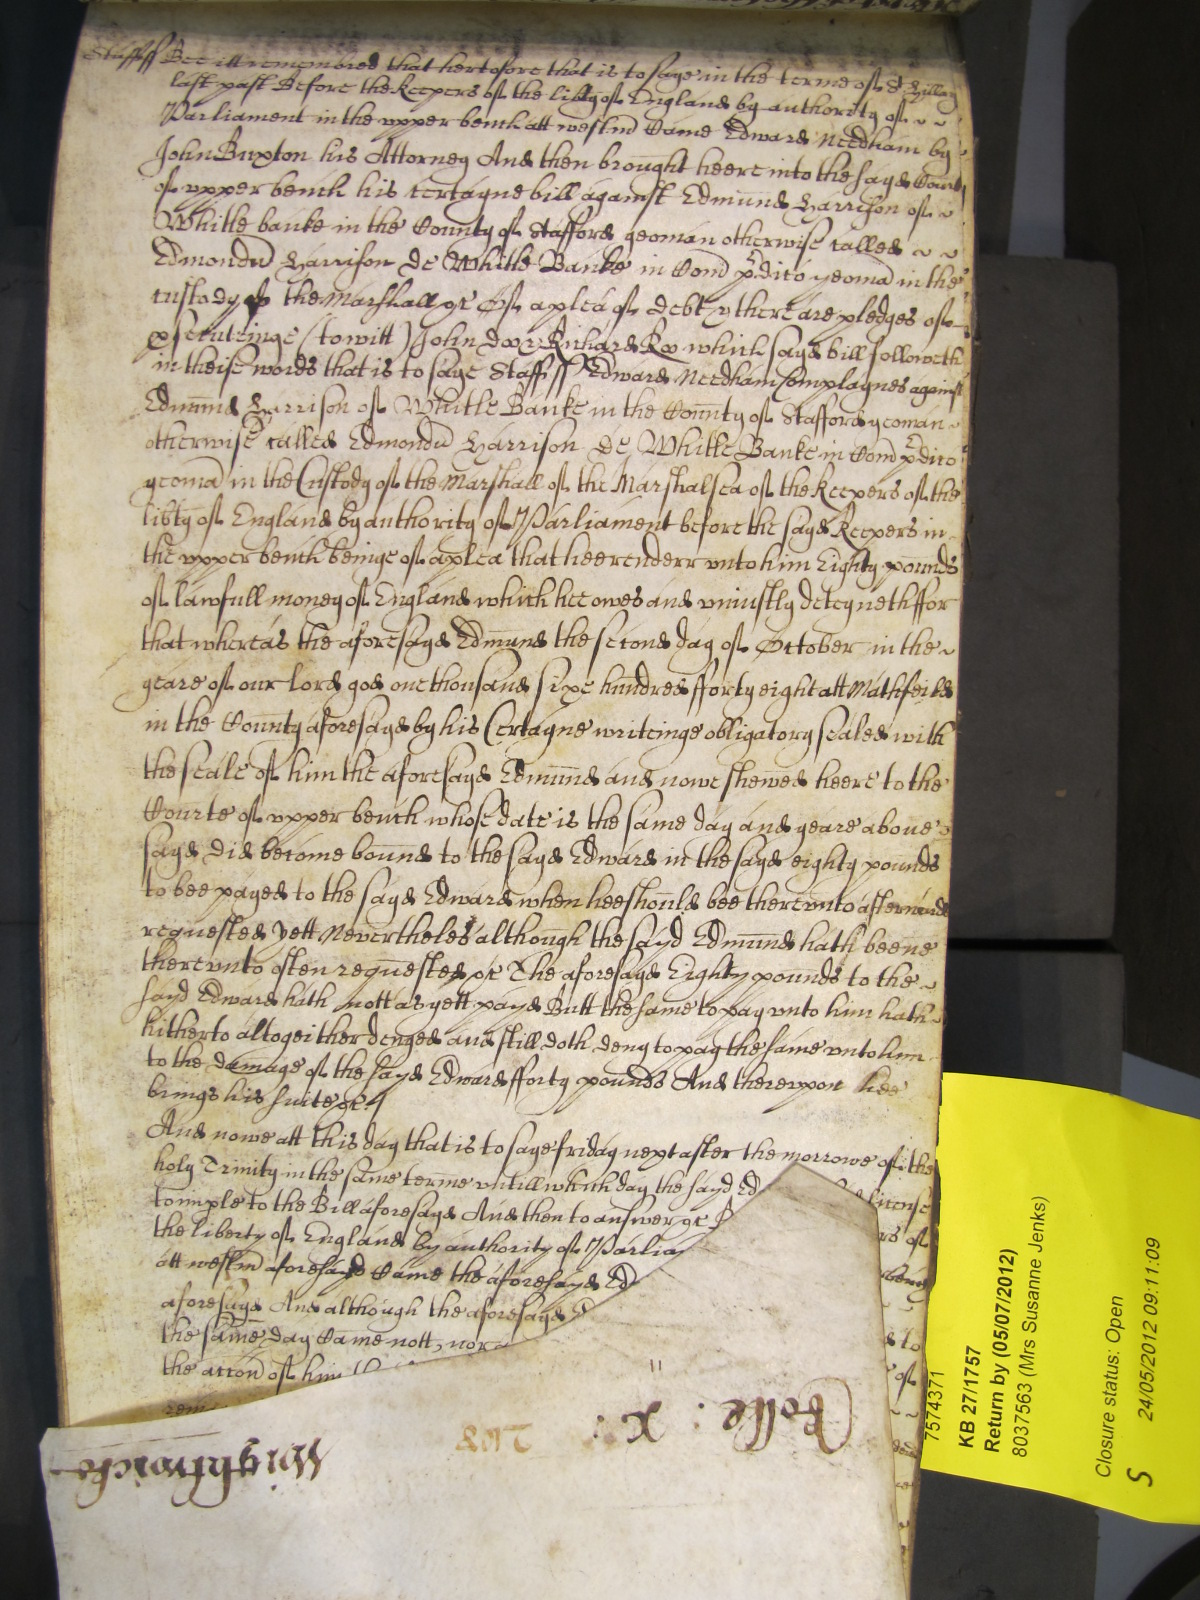 Staff ss Bee itt remembred that hertofore that is to saye in the terme of St Hillary
last past Before the Keepers of the lib̄ty of England by authority of ~ ~
Parliament in the vpper bench att westm̄ Came Edward Needham by
John Buxton his Attorney And then brought heere into the sayd Court
of vpper bench his certayne bill against Edmund Harrison of ~
Whitle banke in the County of Stafford yeoman otherwise called ~ ~
Edmondū Harrison de Whitle Banke in Com̄ p̄dico yeomā in the
custody of the Marshall &c Of a plea of debt & there are pledges of
prosecuteinge (to witt) John Doo & Richard Roo which sayd bill followeth
in theise words that is to saye Staff ss Edward Needham Complaynes against
Edmund Harrison of Whitle Banke in the County of Stafford yeoman ~
otherwise called Edmondū Harrison de Whitle Banke in Com̄ p̄dico
yeomā in the Custody of the Marshall of the Marshalsea of the Keepers of the
lib̄ty of England by authority of Parliament before the sayd Keepers in
the vpper bench beinge of a plea that hee renderr vnto him Eighty pounds
of lawfull money of England which hee owes and vniustly deteyneth ffor
that whereas the aforesayd Edmund the second day of October in the ~
yeare of our lord god one thousand sixe hundred fforty eight att Mathfeild
in the County aforesayd by his Certayne writeinge obligatory sealed with
the seale of him the aforesayd Edmund and nowe shewed heere to the
Courte of vpper bench whose date is the same day and yeare aboue
sayd did become bound to the sayd Edward in the sayd eighty pounds
to bee payed to the sayd Edward when hee should bee therevnto afterwards
requested Yett Neverthelesse although the sayd Edmund hath beene
therevnto often requested &c The aforesayd Eighty pounds to the ~
sayd Edward hath nott as yett payd Butt the same to pay vnto him hath
hitherto altogeither denyed and still doth deny to pay the same vnto him
to the damage of the sayd Edward fforty pounds And therevpon hee
brings his suite &c
And nowe att this day that is to saye friday next after the morrowe of the
holy Trinity in the same terme vntill which day the sayd Ed license
to imple to the Bill aforesayd And then to answer &c rs of
the liberty of England by authority of Parlia
att westm̄ aforesayd Came the aforesayd Ed
aforesayd And although the aforesayd
the same day Came nott, nor s to
the attorn̄ of him of
Rolle : x :
Wightwicke
7574371
KB 27/1757
Return by (05/07/2012)
8037563 (Mrs Susanne Jenks)
Closure status: Open
S 24/05/2012 09:11:09